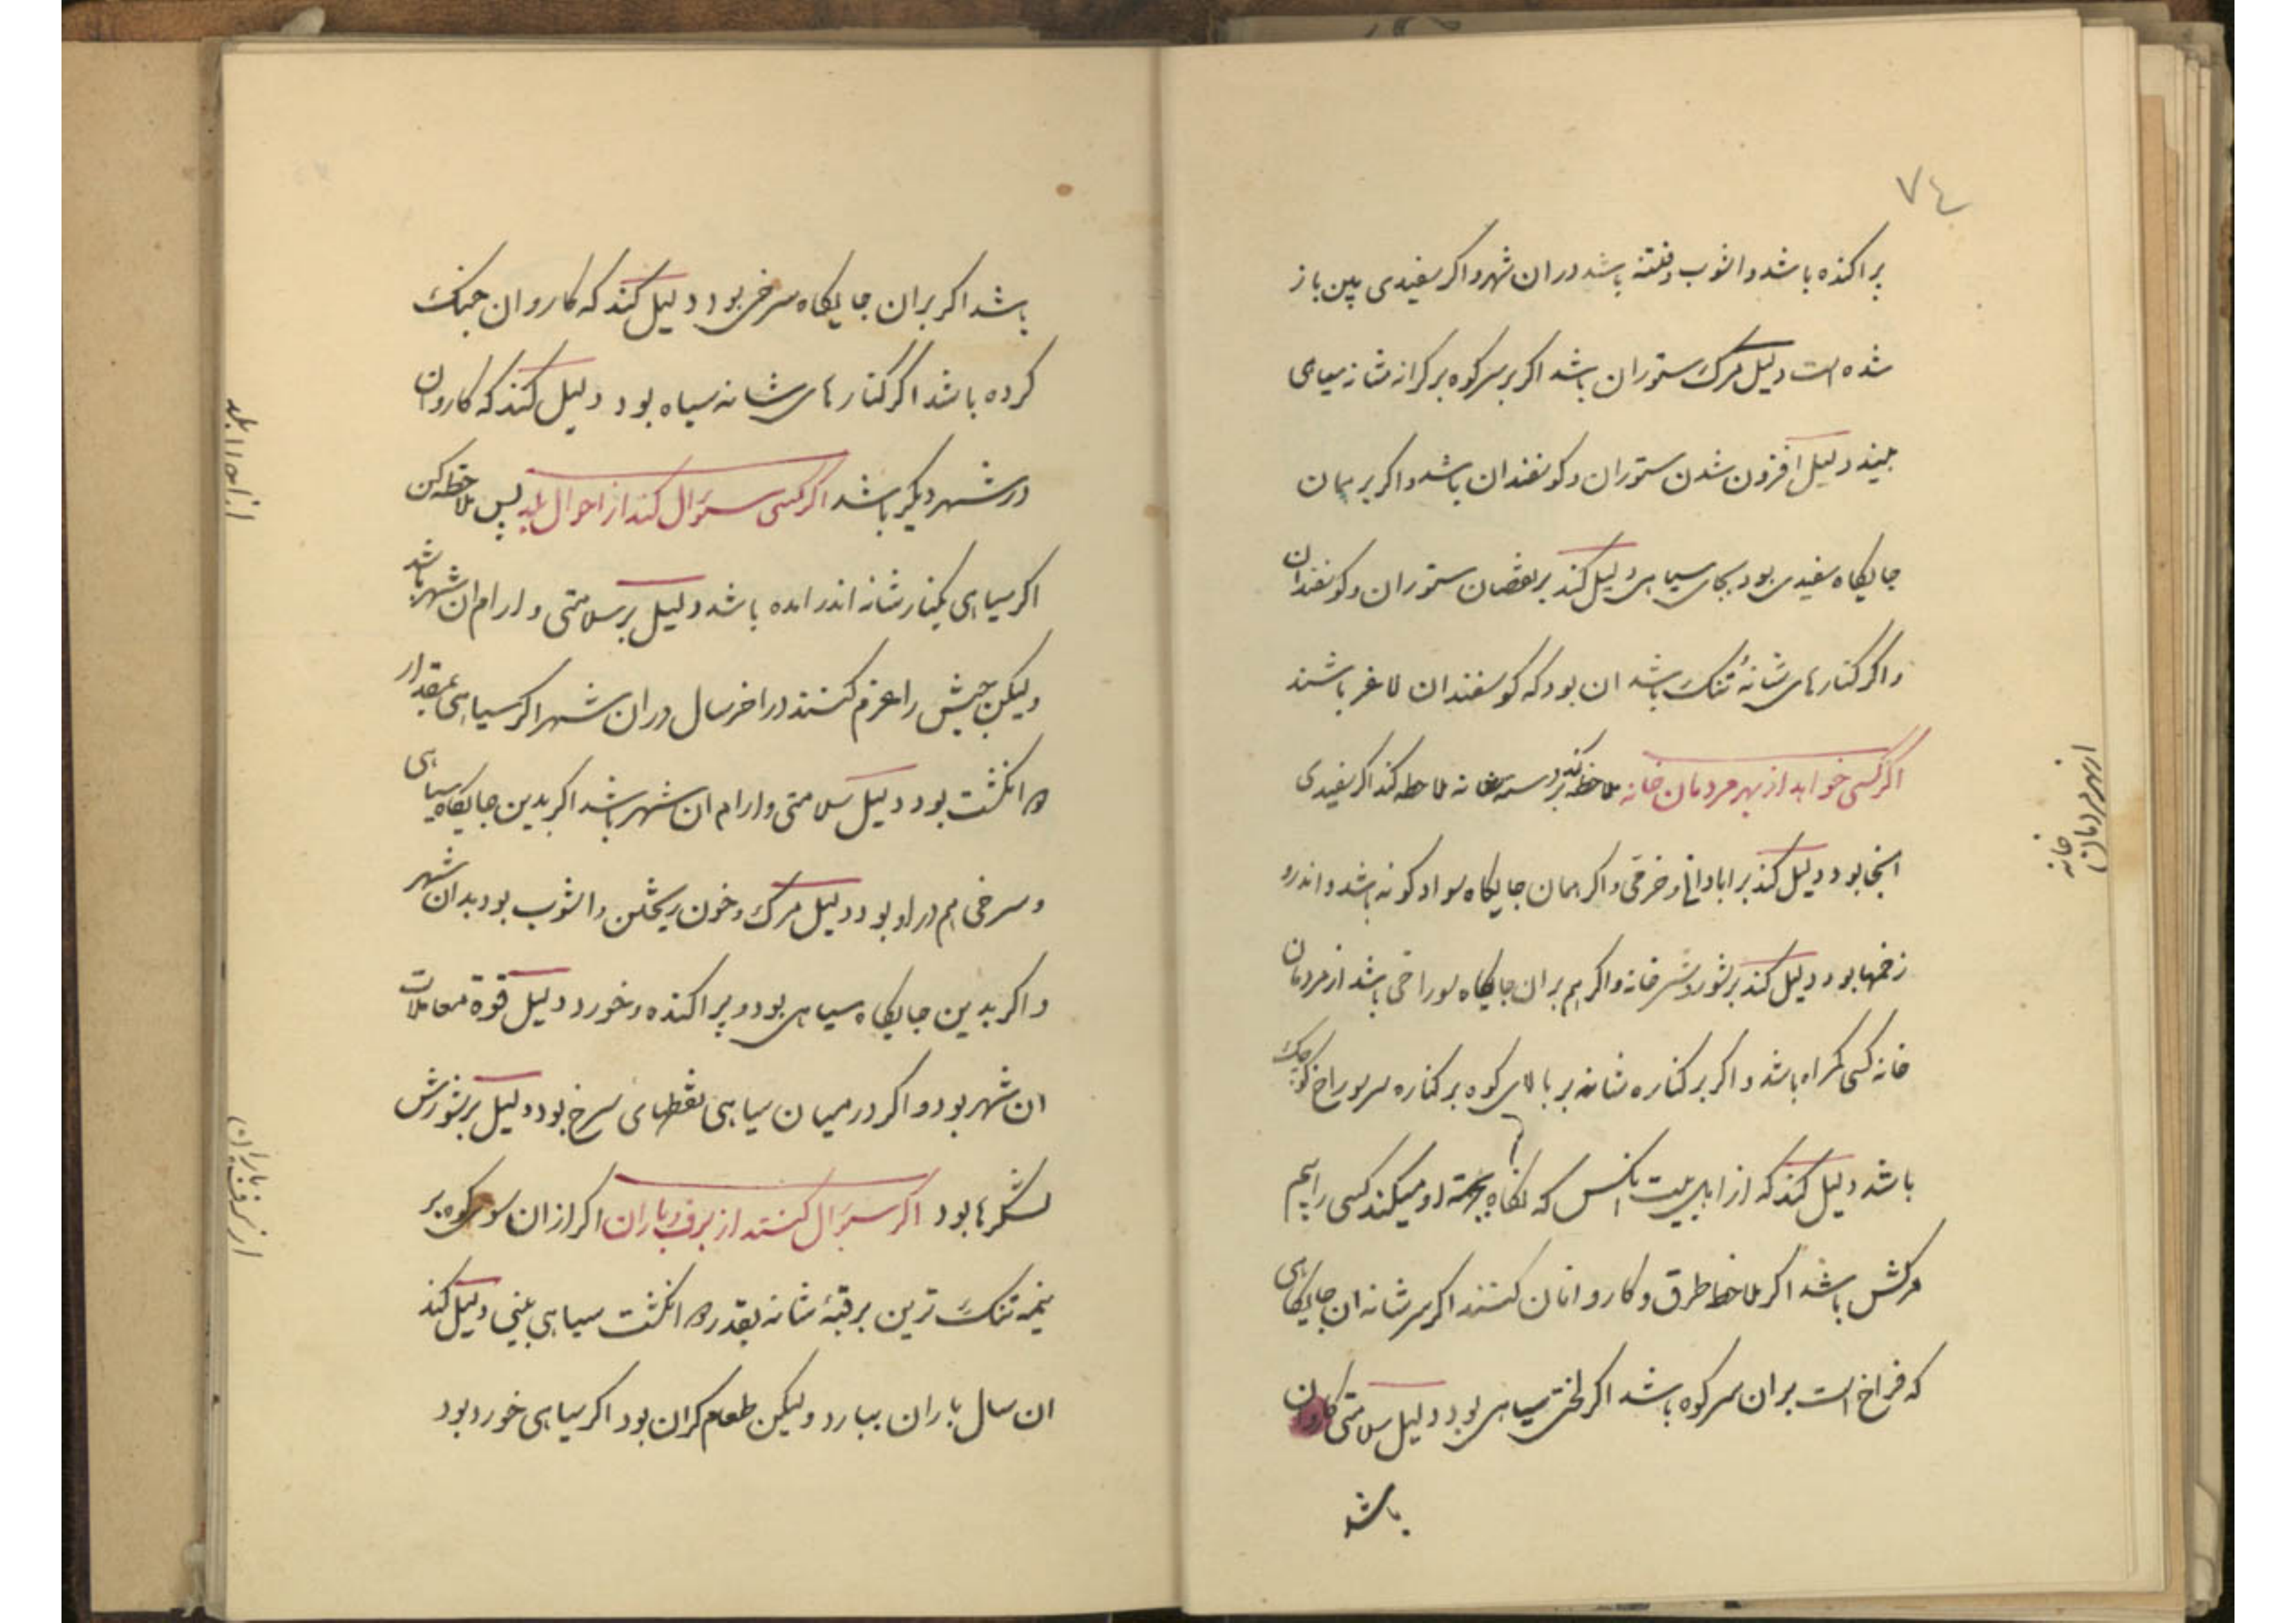 ٧٤
پراکنده باشد و اشوب و فتنه باشد دران شهر و اکر سفیدی پین باز
شده است دلیل مرک ستوران باشد اکر بر سر کوه بر کرانه شانه سیاهی
بیند دلیل افزون شدن ستوران و کوسفندان باشد و اکر بر همان
جایکاه سفیدی بود بجای سیاهی دلیل کند بر نقصان ستوران و کوسفندان
و اکر کنارهای شانه تنک باشد ان بود که کوسفندان لاغر باشند
اکر کسی خواهد از بهر مردمان خانه ملاحظه کند بر سر شانه ملاحظه کند اکر سفیدی
انجا بود دلیل کند بر ابادانی و خرمی و اکر همان جایکاه سواد کونه باشد و اندرو
زخمها بود دلیل کند بر شور و شر خانه و اکر هم بران جایکاه سوراخی باشد از مردمان
خانه کسی کمراه باشد و اکر بر کناره شانه بر بالای کوه بر کناره سر سوراخ کوچک
باشد دلیل کند که از اهل بیت انکس که نکاه بجهته او میکند کسی را بیم
مرکش باشد اکر ملاحظه طرق و کاروانان کنند اکر سر شانه ان جایکاهی
که فراخ است بران سر کوه باشد اکر لختی سیاهی بود دلیل سلامتی کاروان
باشد
از بهر مردمان
خانه
باشد اکر بران جایکاه سرخی بود دلیل کند که کاروان جنک
کرده باشد اکر کنارهای شانه سیاه بود دلیل کند که کاروان
در شهر دیکر باشد اکر کسی سؤال کند از احوال بلد پس ملاحظه کن
اکر سیاهی بکنار شانه اندر امده باشد دلیل بر سلامتی و ارام ان شهر باشد
ولیکن جیش را عزم کنند در اخر سال دران شهر اکر سیاهی بمقدار
ده انکشت بود دلیل سلامتی و ارام ان شهر باشد اکر بدین جایکاه سیاهی
و سرخی هم در او بود دلیل مرک و خون ریختن و اشوب بود بدان شهر
و اکر بدین جایکاه سیاهی بود و پراکنده و خورد دلیل قوة معاملات
ان شهر بود و اکر در میان سیاهی نقطهای سرخ بود دلیل بر شورش
لشکرها بود اکر سؤال کنند از برف و باران اکر از ان سوی کوه بر
نیمه تنک ترین بر قبّهٔ شانه بقدر ده انکشت سیاهی بینی دلیل کند
ان سال باران ببارد ولیکن طعام کران بود اکر سیاهی خورد بود
از احوال بلد
از برف و باران